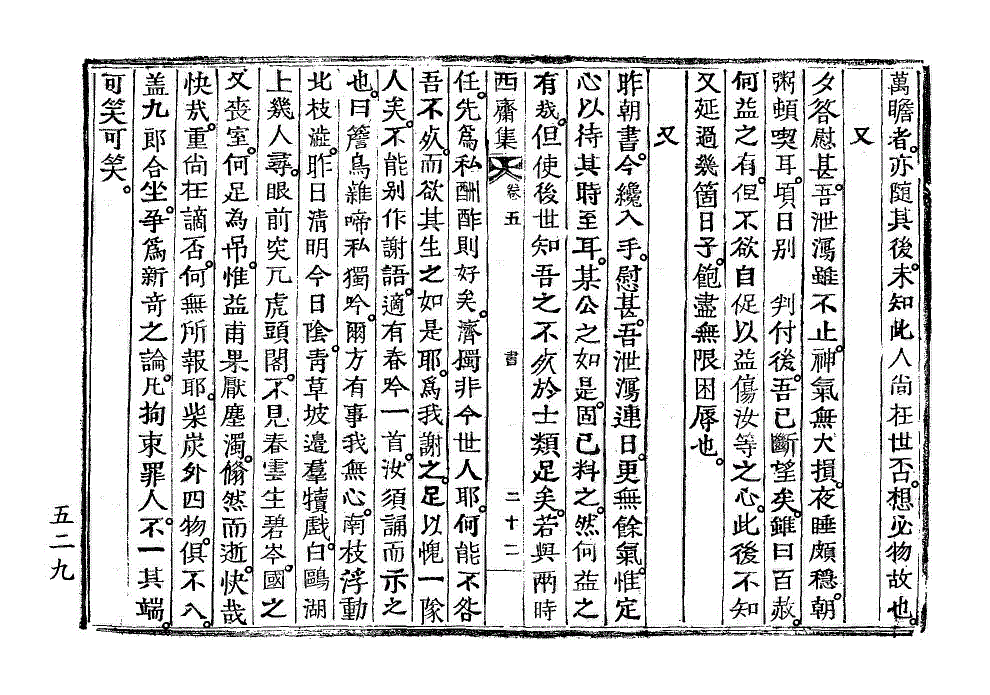 萬瞻者。亦随其後。未知此人尙在世否。想必物故也。
又
夕答慰甚。吾泄瀉雖不止。神氣無大損。夜睡頗穩。朝
粥頓喫耳。頃日別　判付後。吾已斷望矣。雖曰百赦。
何益之有。但不欲自促以益傷汝等之心。此後不知
又延過幾箇日子。飽盡無限困辱也。
又
昨朝書。今纔入手。慰甚。吾泄瀉連日。更無餘氣。惟定
心以待其時至耳。某公之如是。固已料之。然何益之
有哉。但使後世知吾之不疚於士類足矣。若與兩時
西齋集 卷五 書 二十二
任。先爲私酬酢則好矣。濟獨非今世人耶。何能不咎
吾不疚。而欲其生之如是耶。爲我謝之。足以愧一隊
人矣。不能別作謝語。適有春吟一首。汝須誦而示之
也。曰簷鳥雜啼私獨吟。爾方有事我無心。南枝浮動
北枝澁。昨日清明今日陰。靑草坡邉羣犢戲。白鷗湖
上幾人尋。眼前突兀虎頭閣。不見春雲生碧岑。國之
又喪室。何足為吊。惟益甫果厭塵濁。翛然而逝。快哉
快哉。重尙在謫否。何無所報耶。柴炭外四物。俱不入。
盖九郎合坐。爭爲新奇之論。凡拘束罪人。不一其端。
可笑可笑。
五二九